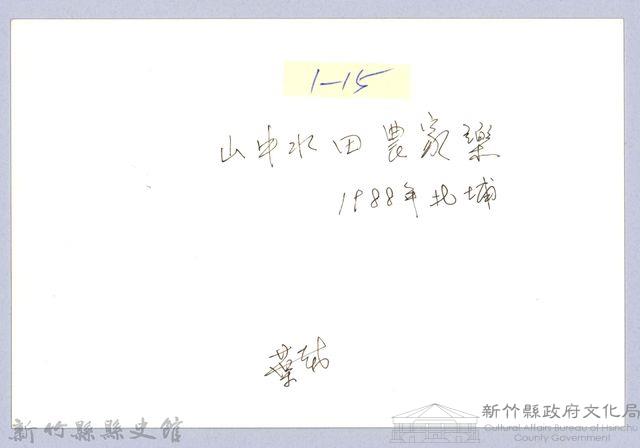 1-15
山中水田農家樂
1988年北埔
葉
新竹縣縣史館
新竹縣政府文化局
Cultural Affairs Bureau of Hsinchu
County Government